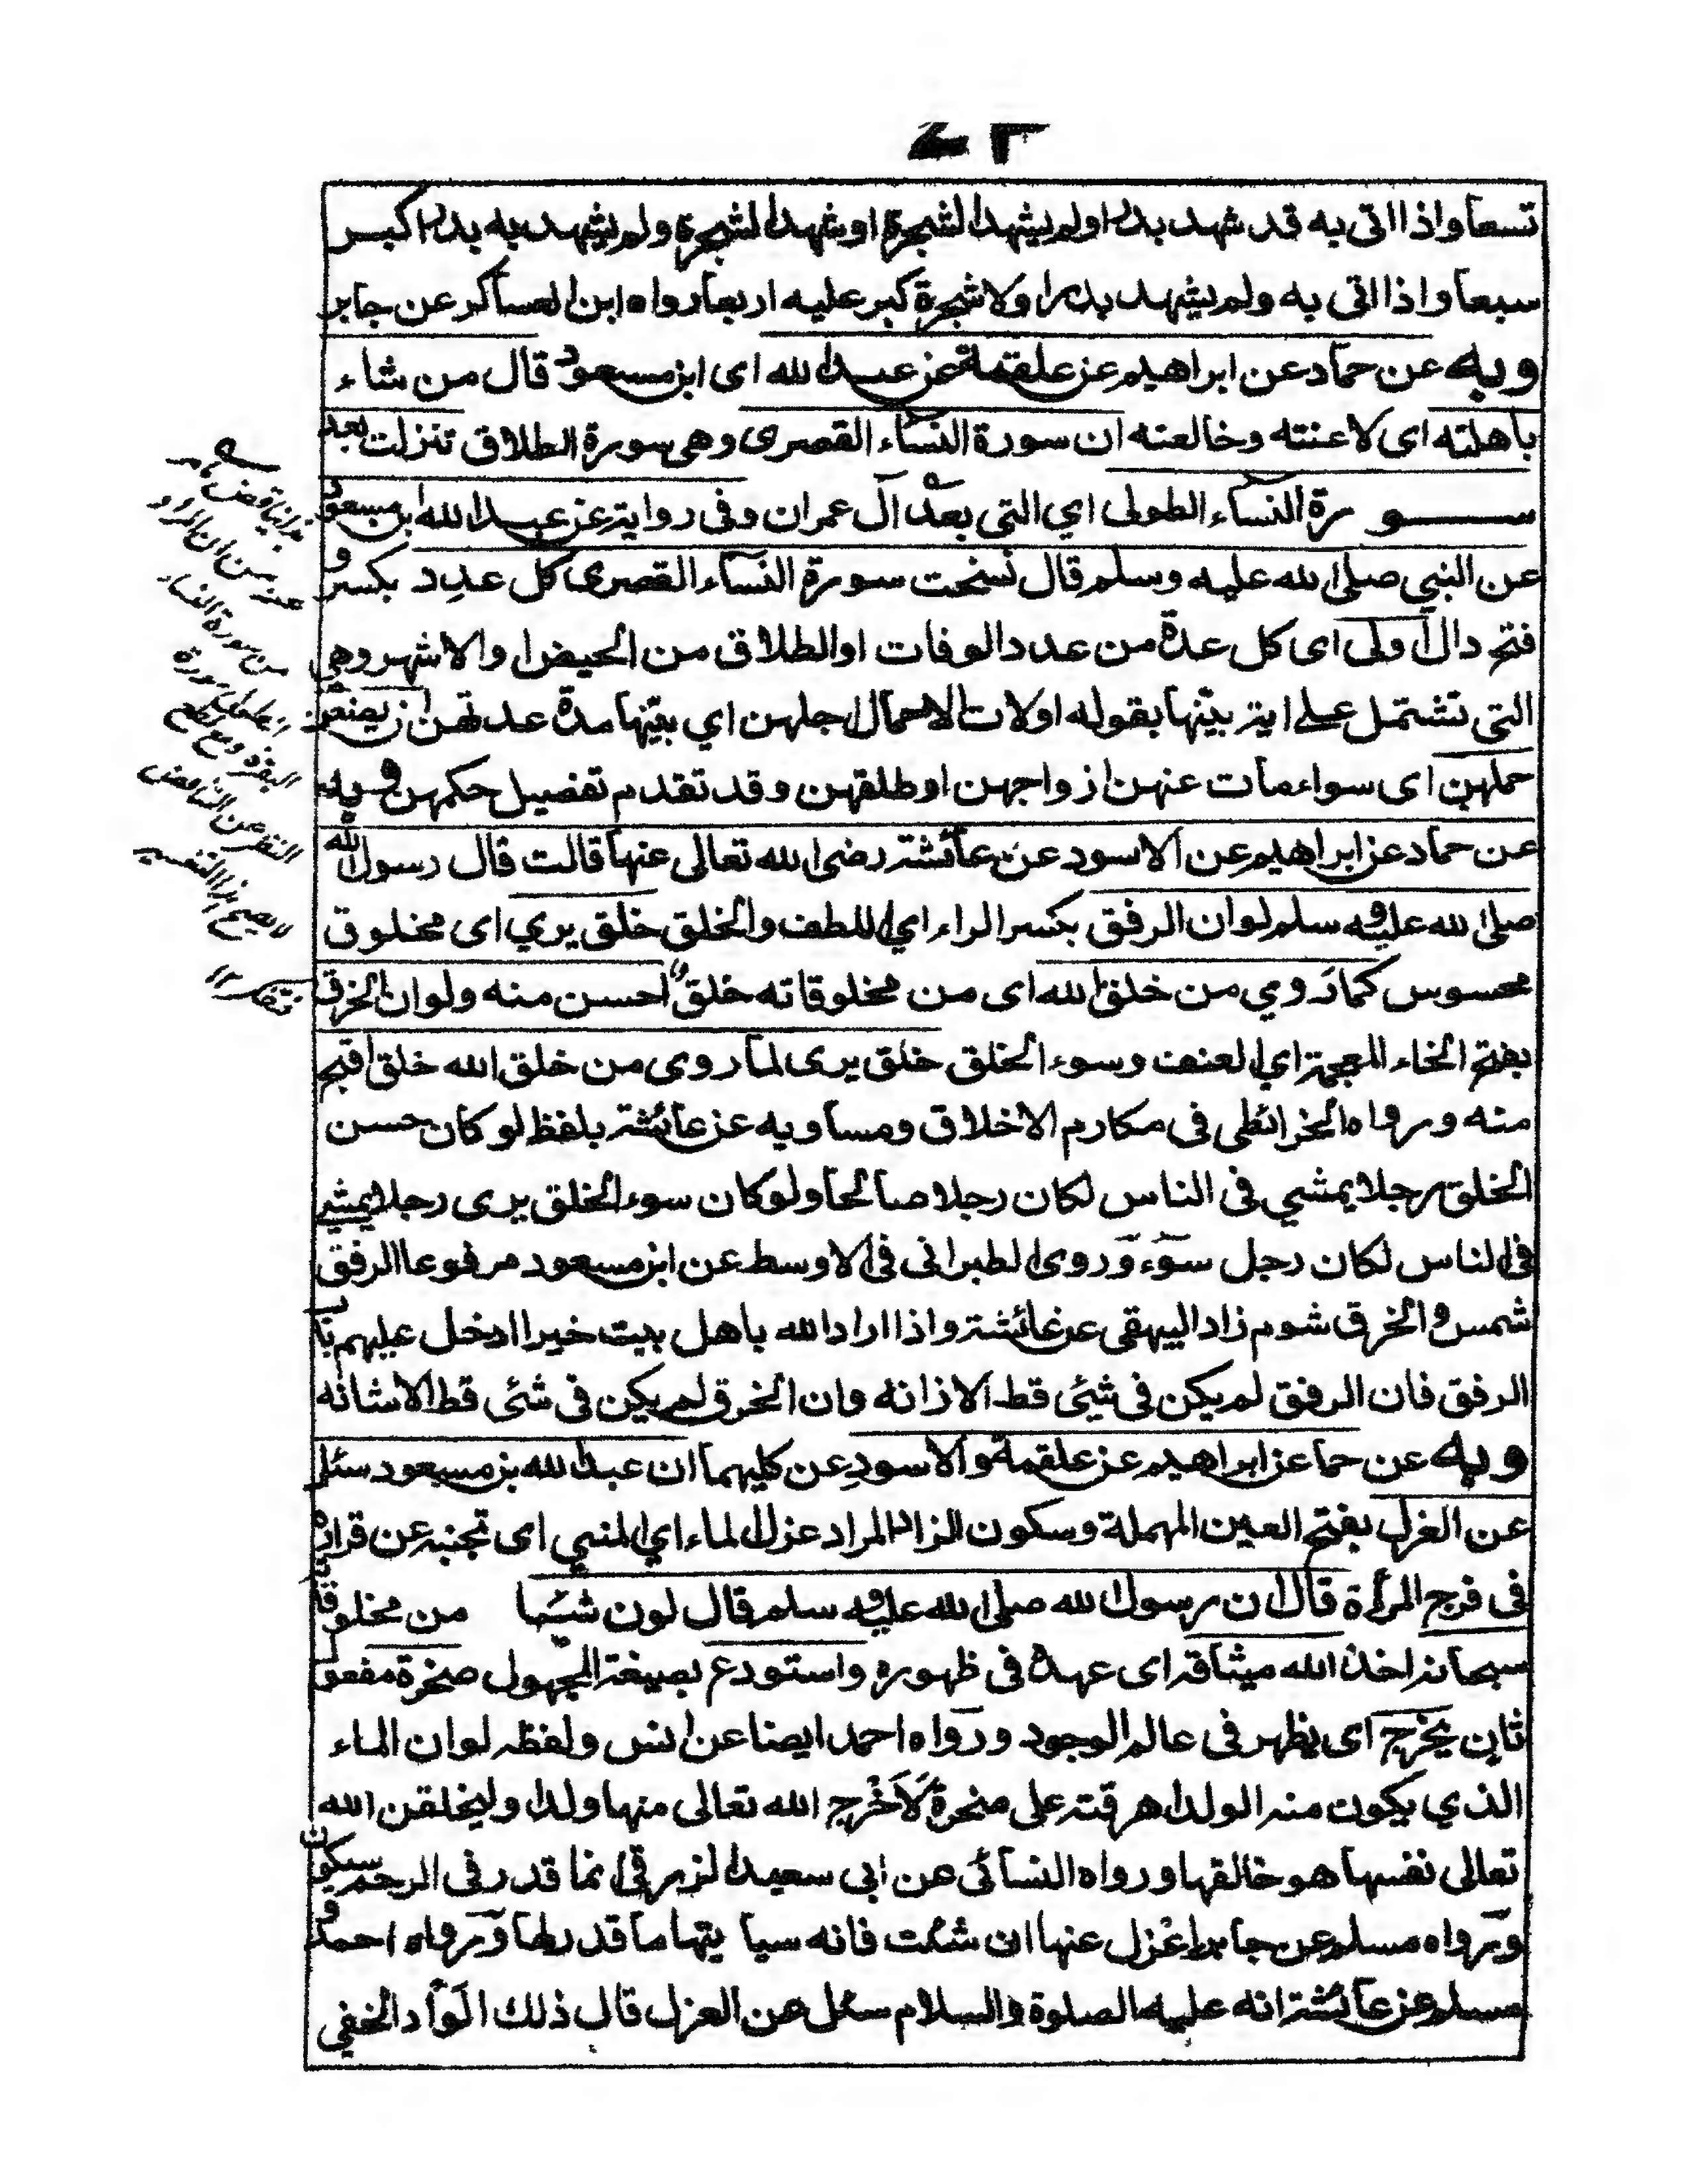 ٧٢
تسعا واذا اتى به قد شهد بدرا ولم يشهد الشجرة او شهد الشجرة ولم يشهد به بدرا كبر
سبعا واذا اتى به ولم يشهد بدرا ولا شجرة كبر عليه اربعا رواه ابن العساكر عن جابر
وبه عن حماد عن ابراهيم عن علقمة عن عبد الله اى ابن مسعود قال من شاء
باهلته اى لاعنته وخالعنه ان سورة النساء القصرى وهى سورة الطلاق تنزلت بعد
سورة النساء الطولى اي التي بعد آل عمران وفى رواية عن عبد الله ابن مسعود
عن النبي صلى الله عليه وسلم قال نسخت سورة النساء القصرى كل عدد بكسر و
فتح دال اولى اى كل عدة من عدد الوفات او الطلاق من الحيض او الاشهر وهي
التى تشتمل على اية بيّنها بقوله اولات الاحمال اجلهن اي بيّنها مدة عدتهن ان يضعن
حملهن اى سواء مات عنهن ازواجهن او طلقهن وقد تقدم تفصيل حكمهن وبه
عن حماد عن ابراهيم عن الاسود عن عائشة رضى الله تعالى عنها قالت قال رسول الله
صلى الله عليه وسلم لو ان الرفق بكسر الراء اي اللطف والخلق خلق يري اى مخلوق
محسوس كما روي من خلق الله اى من مخلوقاته خلق احسن منه ولو ان الخرق
بفتح الخاء المعجمة اي العنف وسوء الخلق خلق يرى لما روى من خلق الله خلق اقبح
منه ورواه الخرائطى فى مكارم الاخلاق ومساويه عن عائشة بلفظ لو كان حسن
الخلق رجلا يمشي فى الناس لكان رجلا صالحا ولو كان سوء الخلق يرى رجلا يمشى
فى الناس لكان رجل سوء وروى الطبرانى فى الاوسط عن ابن مسعود مرفوعا الرفق
شمس والخرق شوم زاد البيهقى عن عائشة واذا اراد الله باهل بيت خيرا ادخل عليهم باب
الرفق فان الرفق لم يكن فى شيئ قط الا زانه وان الخرق لم يكن فى شئى قط الا شانه
وبه عن حما عن ابراهيم عن علقمة والاسود عن كليهما ان عبد الله بن مسعود سئل
عن العزل بفتح العين المهملة وسكون الزاد المراد عزل الماء اي المني اى تجنبه عن قراره
فى فرج المرأة قال ان رسول الله صلى الله عليه وسلم قال لون شيئا من مخلوقاته
سبحانه اخذ الله ميثاقه اى عهده فى ظهوره واستودع بصيغة المجهول صخرة مفعول
ثان يخرج اى يظهر فى عالم الوجود ورواه احمد ايضا عن انس ولفظه لو ان الماء
الذي يكون منه الولد اهرقته على منحرة لَاَخْرج الله تعالى منها ولدا وليخلقن الله
تعالى نفسها هو خالقها ورواه النسائى عن ابى سعيد الزرقى انما قدر فى الرحم سيكون
ورواه مسلم عن جابر اعزل عنها ان شئت فانه سيا يتها ما قدر لها ورواه احمد و
مسلم عن عائشة انه عليه الصلوة والسلام سئل عن العزل قال ذلك الوأد الخفي
من سورة النساء
لا يصح هذا التفسير